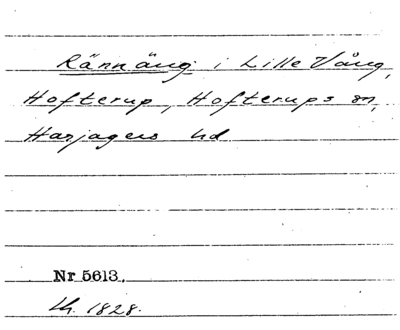 Rännäng i Lille Vång,
Hofterup, Hofterups sn,
Harjagers hd
Nr 5613.
1828.